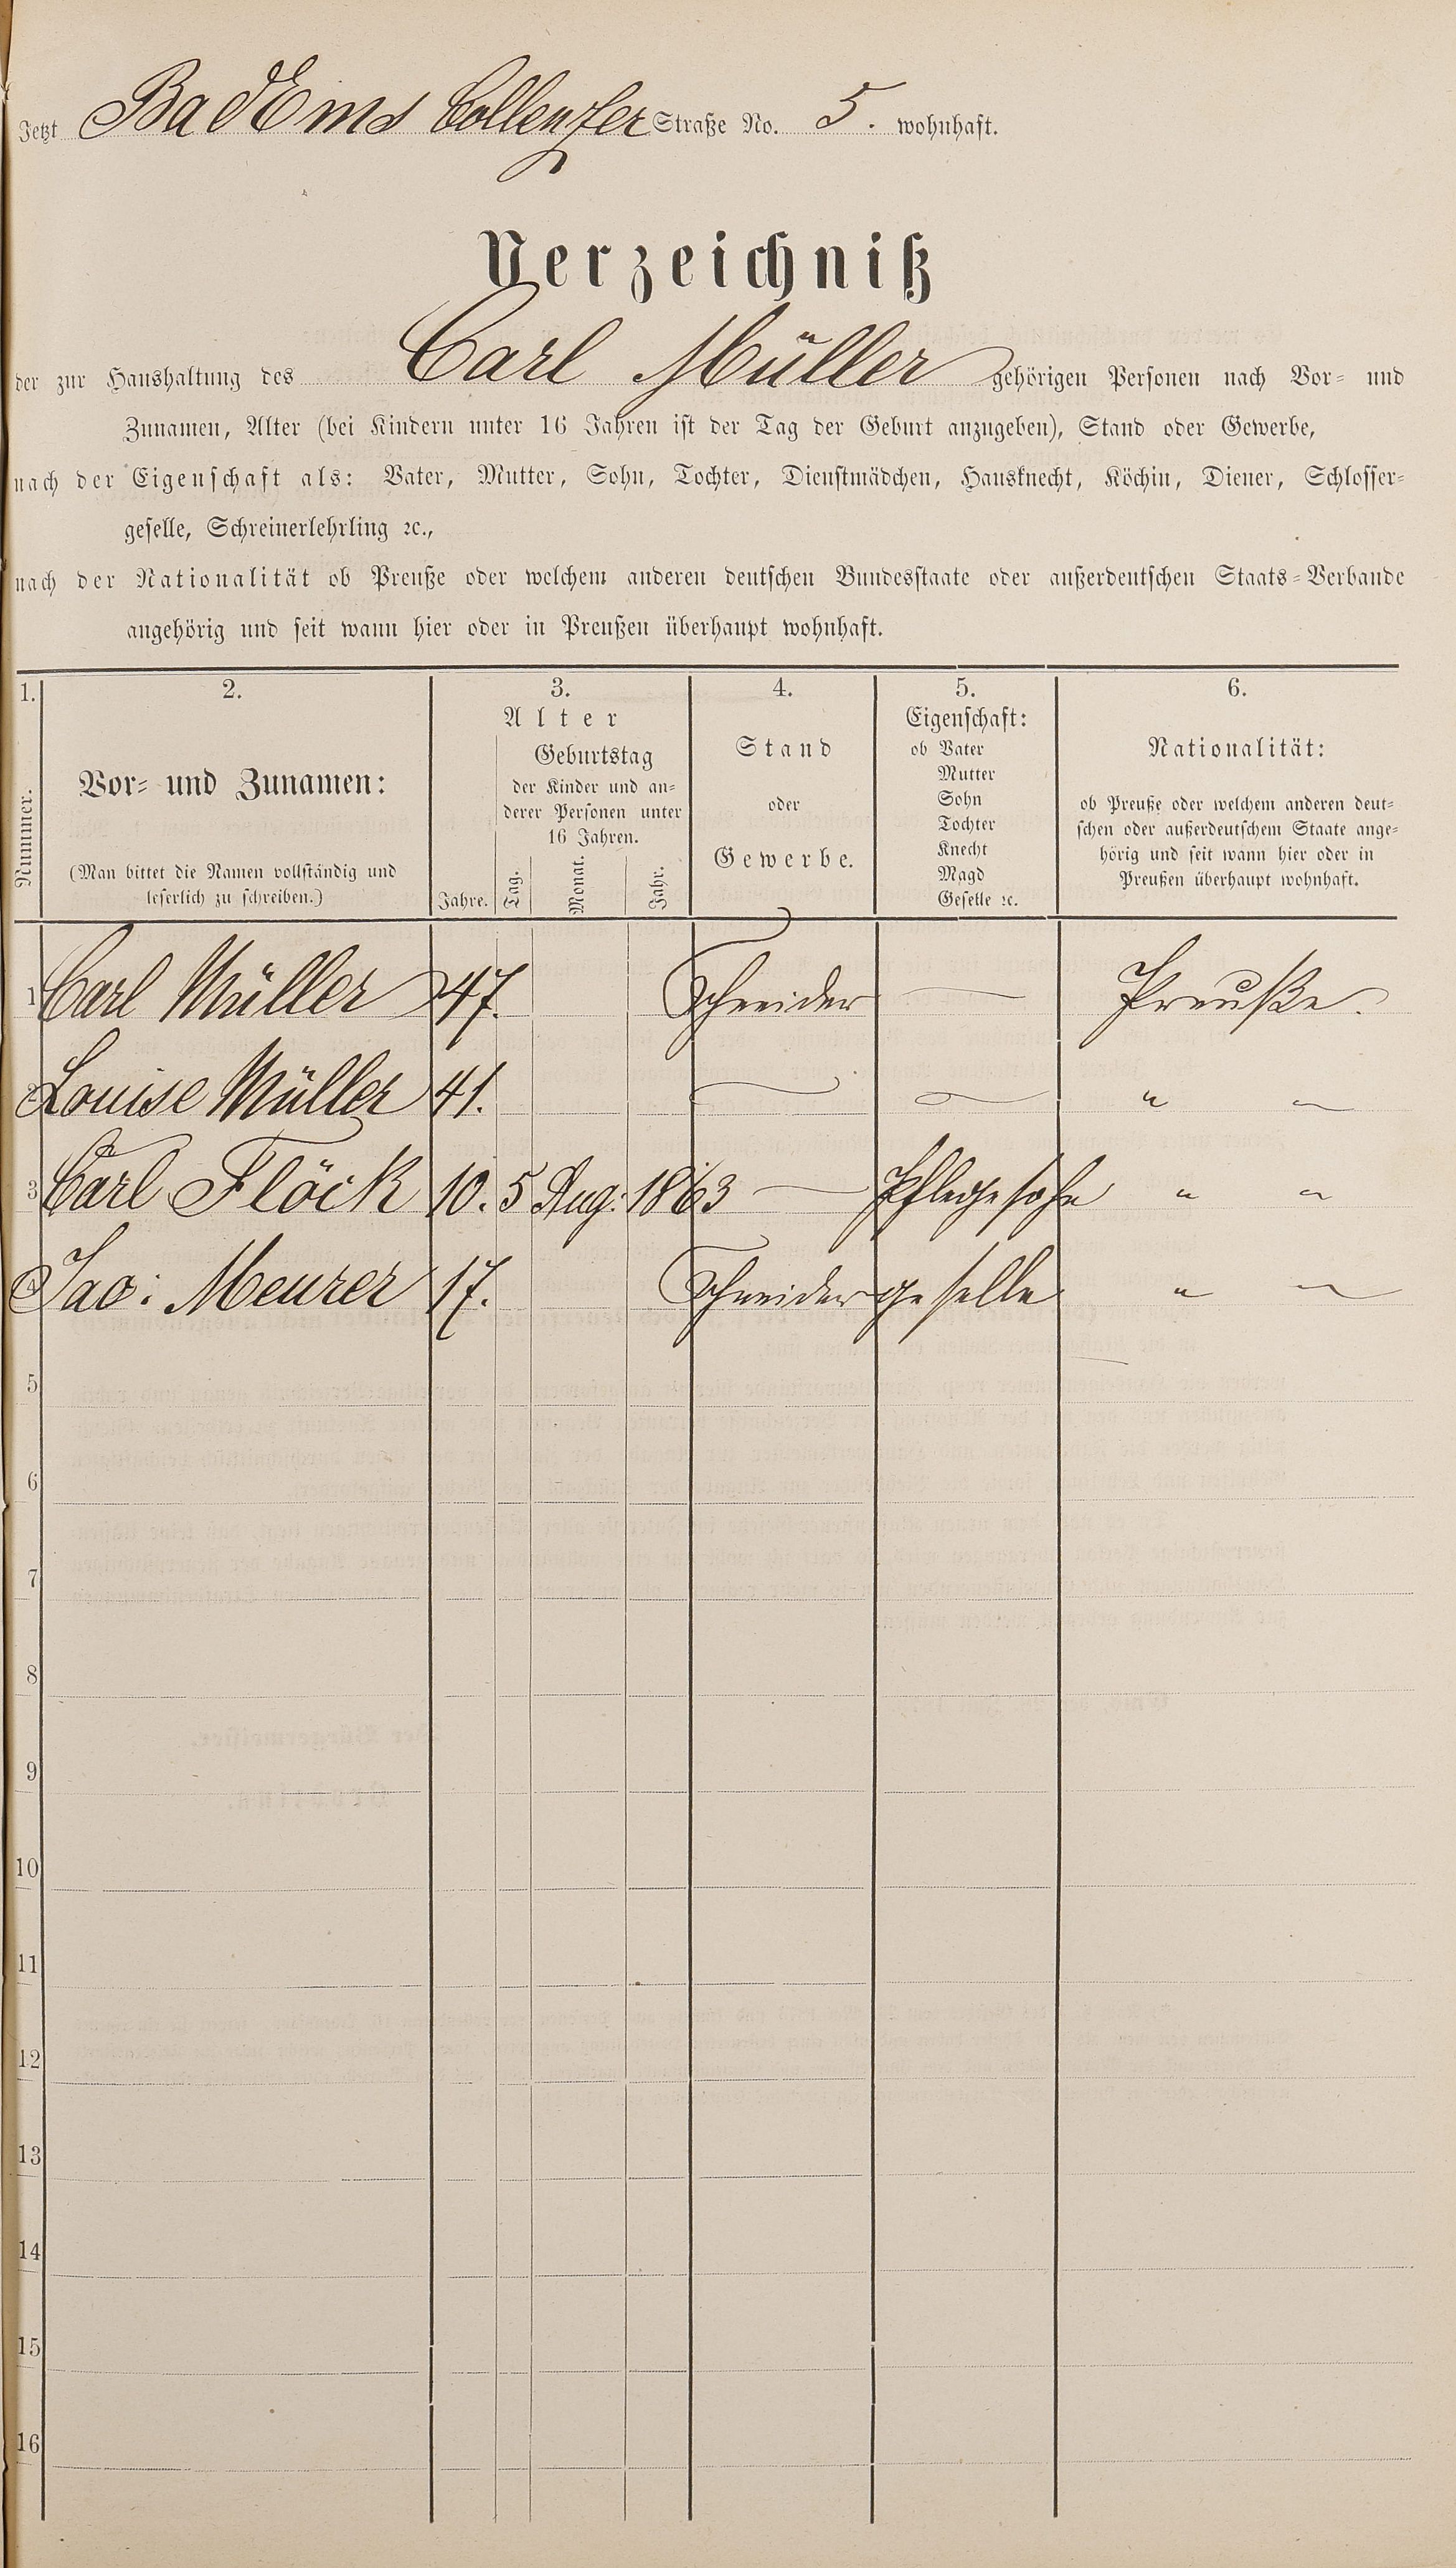 Jetzt Bad Ems Collenzer Straße No. 5. wohnhaft.
Verzeichniß
der zur Haushaltung des Carl Müller gehörigen Personen nach Vor- und
Zunamen, Alter (bei Kindern unter 16 Jahren ist der Tag der Geburt anzugeben), Stand oder Gewerbe,
nach der Eigenschaft als: Vater, Mutter, Sohn, Tochter, Dienstmädchen, Hausknecht, Köchin, Diener, Schlosser-
geselle, Schreinerlehrling ꝛc.,
nach der Nationalität ob Preuße oder welchem anderen deutschen Bundesstaate oder außerdeutschen Staats-Verbande
angehörig und seit wann hier oder in Preußen überhaupt wohnhaft.
1.
Nummer.
2.
Vor- und Zunamen:
(Man bittet die Namen vollständig und
leserlich zu schreiben.)
3.
Alter
Jahre.
Geburtstag
der Kinder und an-
derer Personen unter
16 Jahren.
Tag.
Monat.
Jahr.
4.
Stand
oder
Gewerbe.
5.
Eigenschaft:
ob Vater
Mutter
Sohn
Tochter
Knecht
Magd
Geselle ꝛc.
6.
Nationalität:
ob Preuße oder welchem anderen deut-
schen oder außerdeutschem Staate ange-
hörig und seit wann hier oder in
Preußen überhaupt wohnhaft.
1 Carl Müller 47. Schneider — Preuße.
2 Louise Müller 41. — — " "
3 Carl Flöck 10. 5 Aug: 1863 — Pflegesohn " "
4 Jac: Meurer 17. Schneidergeselle " "
5
6
7
8
9
10
11
12
13
14
15
16